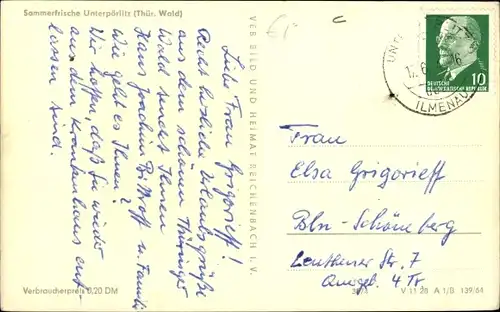 Sommerfrische Unterpörlitz (Thür. Wald)
Liebe Frau Grigorieff!
Recht herzliche Urlaubsgrüße
aus dem schönen Thüringer
Wald sendet Ihnen
Hans Joachim Bittroff u. Familie
Wie geht es Ihnen?
Wir hoffen, daß Sie wieder
aus dem Krankenhaus ent-
lassen sind.
VEB BILD UND HEIMAT REICHENBACH I. V.
Verbraucherpreis 0,20 DM
ILMENAU
DEUTSCHE
DEMOKRATISCHE REPUBLIK
10
Frau
Elsa Grigorieff
Bln-Schöneberg
Leuthener Str. 7
Quergeb. 4 Tr.
V 11 28 A 1/B 139/64